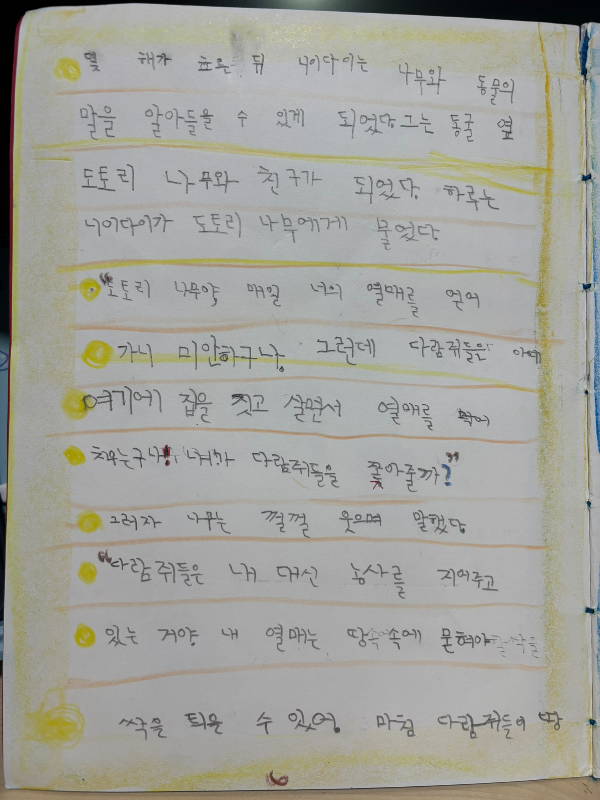 몇 해가 흐른 뒤 니이다이는 나무와 동물의
말을 알아들을 수 있게 되었다. 그는 동굴 옆
도토리 나무와 친구가 되었다. 하루는
니이다이가 도토리 나무에게 물었다.
"도토리 나무야, 매일 너의 열매를 얻어
가니 미안하구나. 그런데 다람쥐들은 아예
여기에 집을 짓고 살면서 열매를 먹어
치우는구나! 내가 다람쥐들을 쫓아줄까?"
그러자 나무는 껄껄 웃으며 말했다.
"다람쥐들은 내 대신 농사를 지어주고
있는 거야. 내 열매는 땅속에 묻혀야
싹을 틔울 수 있어. 마침 다람쥐들이 땅
6